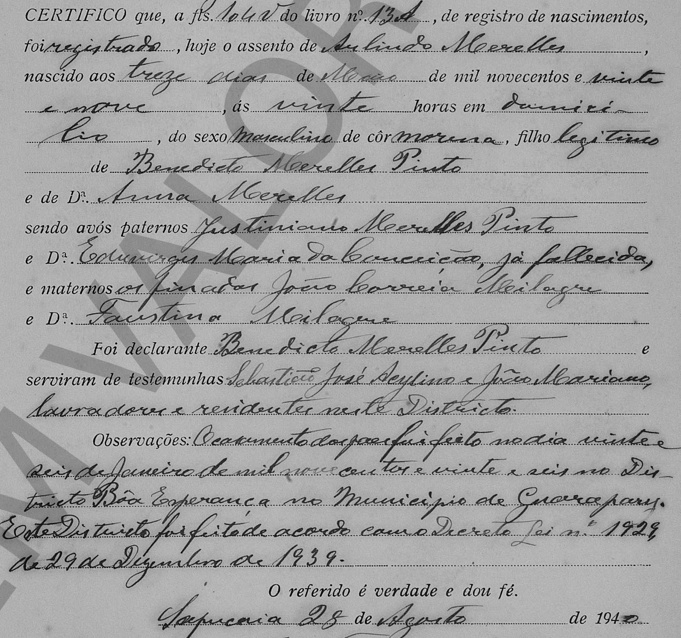 CERTIFICO que, a fls. 104V do livro nº. 13A, de registro de nascimentos,
foi registrado, hoje o assento de Arlindo Merelles,
nascido aos treze dias de Maio de mil novecentos e vinte
e nove, ás vinte horas em domici-
lio, do sexo masculino de côr morena, filho legitimo
de Benedicto Merelles Pinto
e de Dª. Anna Merelles
sendo avós paternos Justiniano Merelles Pinto
e Dª. Eduvirges Maria da Conceição, já fallecida,
e maternos os finados João Correia Milagre
e Dª. Faustina Milagre
Foi declarante Benedicto Merelles Pinto e
serviram de testemunhas Sebastião José Acylino e João Mariano,
lavradores e residentes neste Districto.
Observações: O casamento dos paes foi feito no dia vinte e
seis de Janeiro de mil novecentos e vinte e seis no Dis-
tricto Bôa Esperança no Municipio de Guarapary.
Este Districto foi feito de acordo com o Decreto Lei n.º 1929,
de 29 de Dezembro de 1939.
O referido é verdade e dou fé.
Sapucaia 28 de Agosto de 1940
EM VALOR